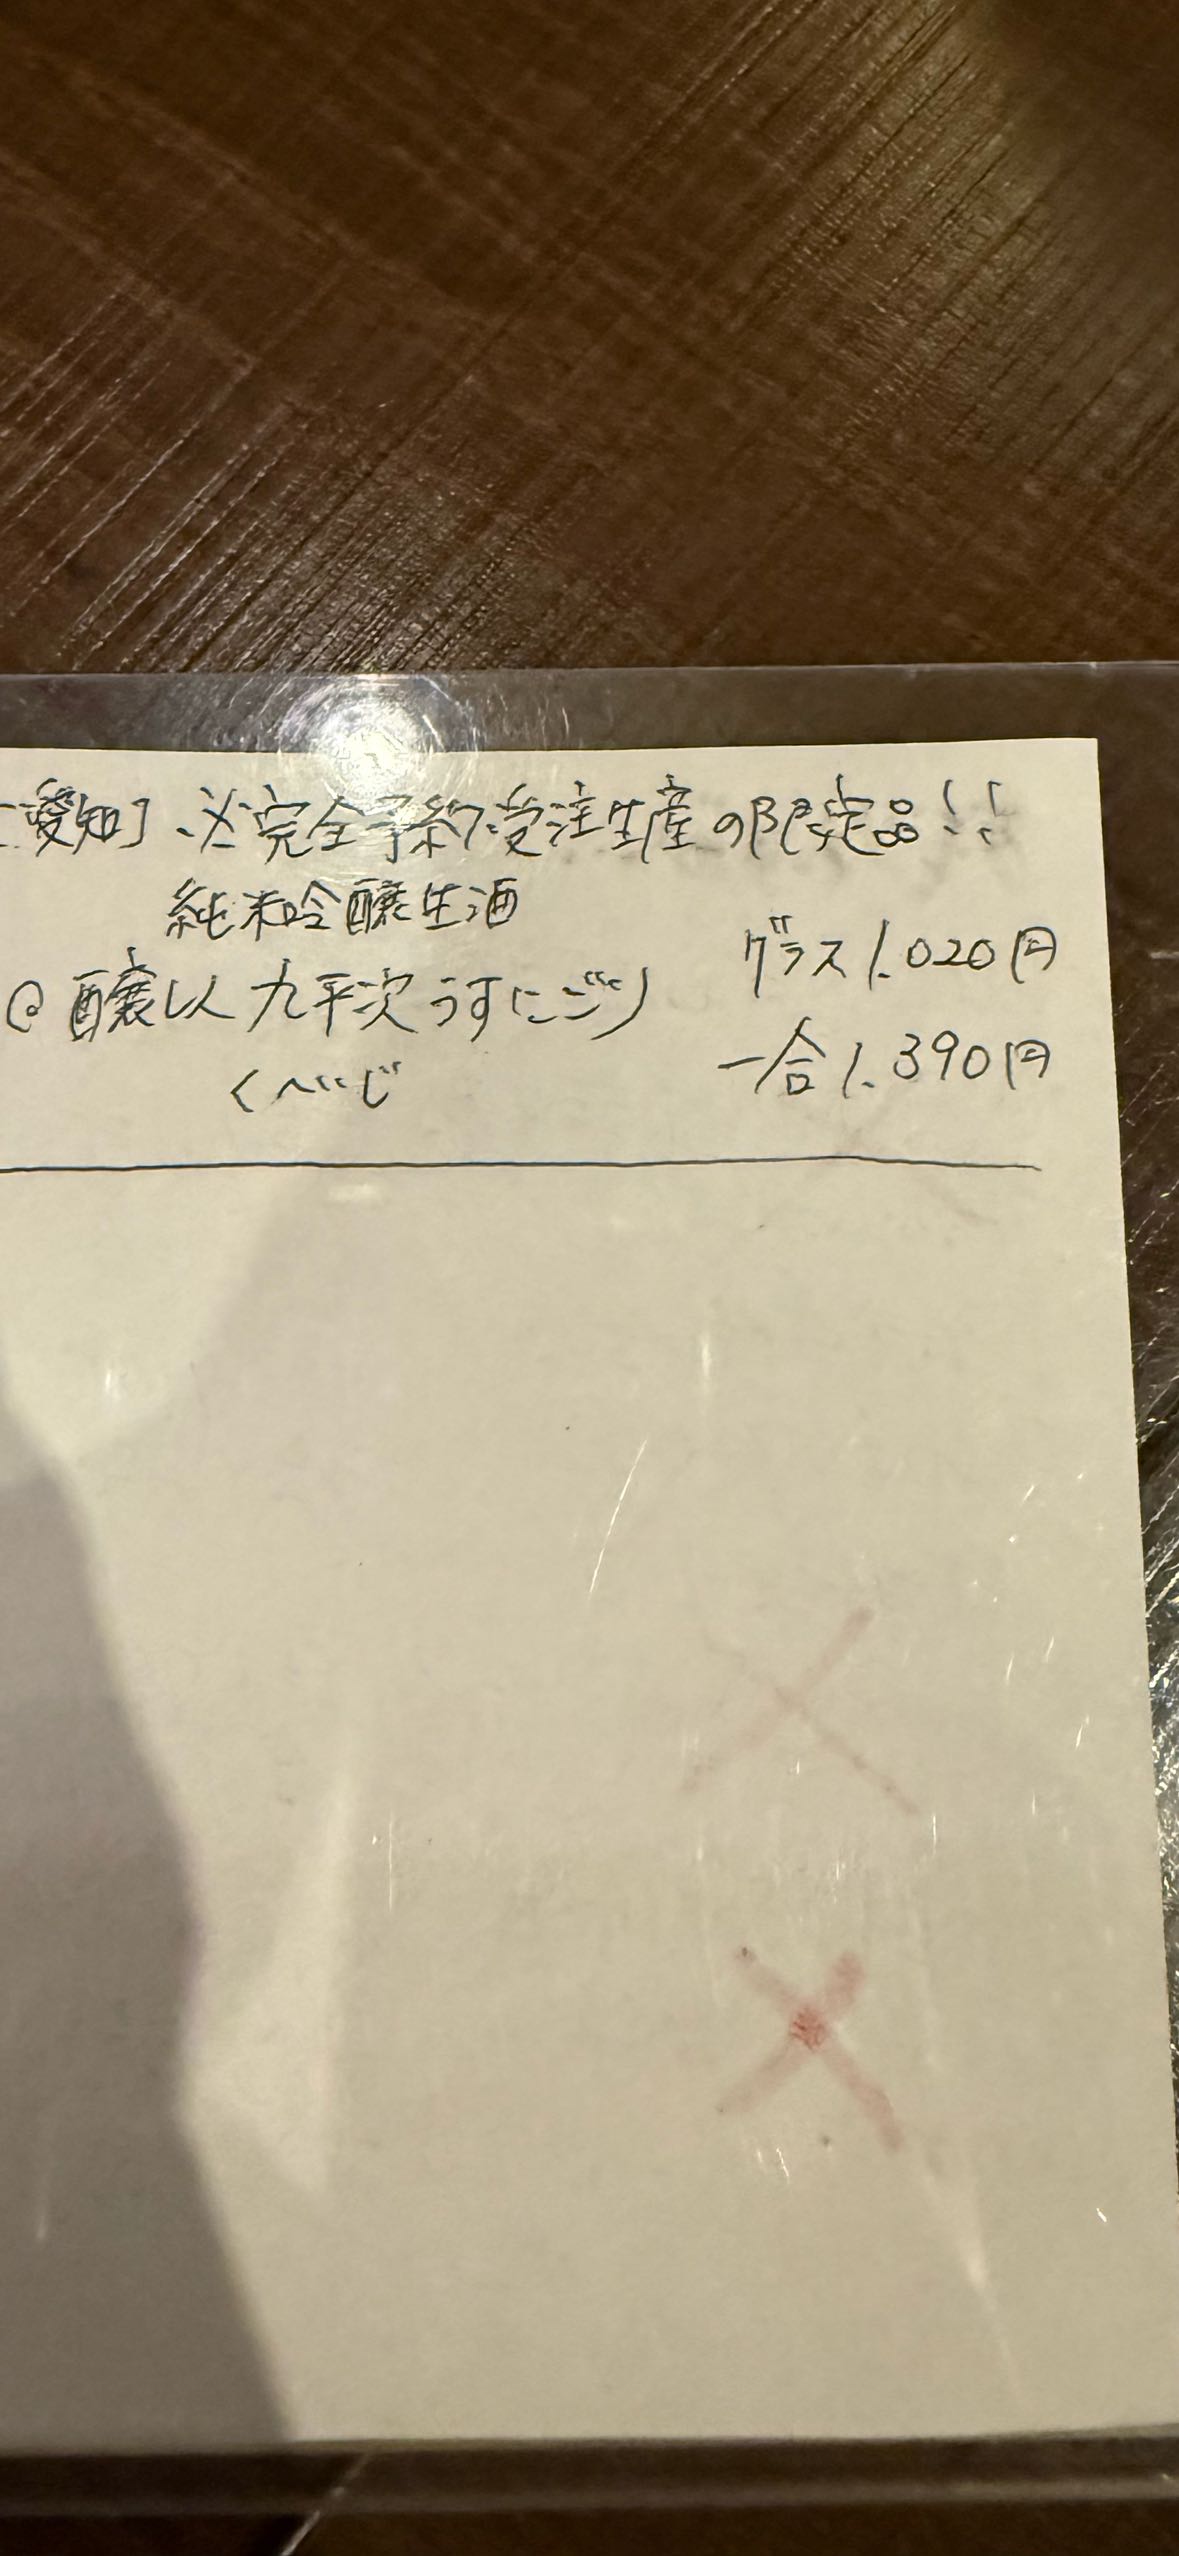 [愛知] ※完全予約受注生産の限定品!!
純米吟醸生酒
◎醸し人九平次うすにごり
くへいじ
グラス1.020円
一合1.390円